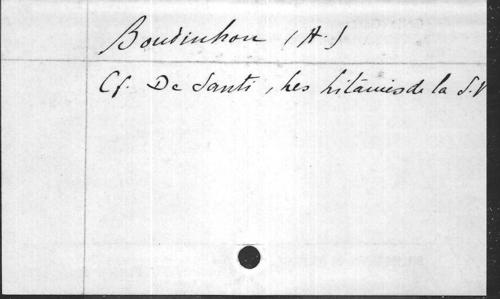 Boudinhon (A.)
Cf. De Santi, Les Litanies de la S. V